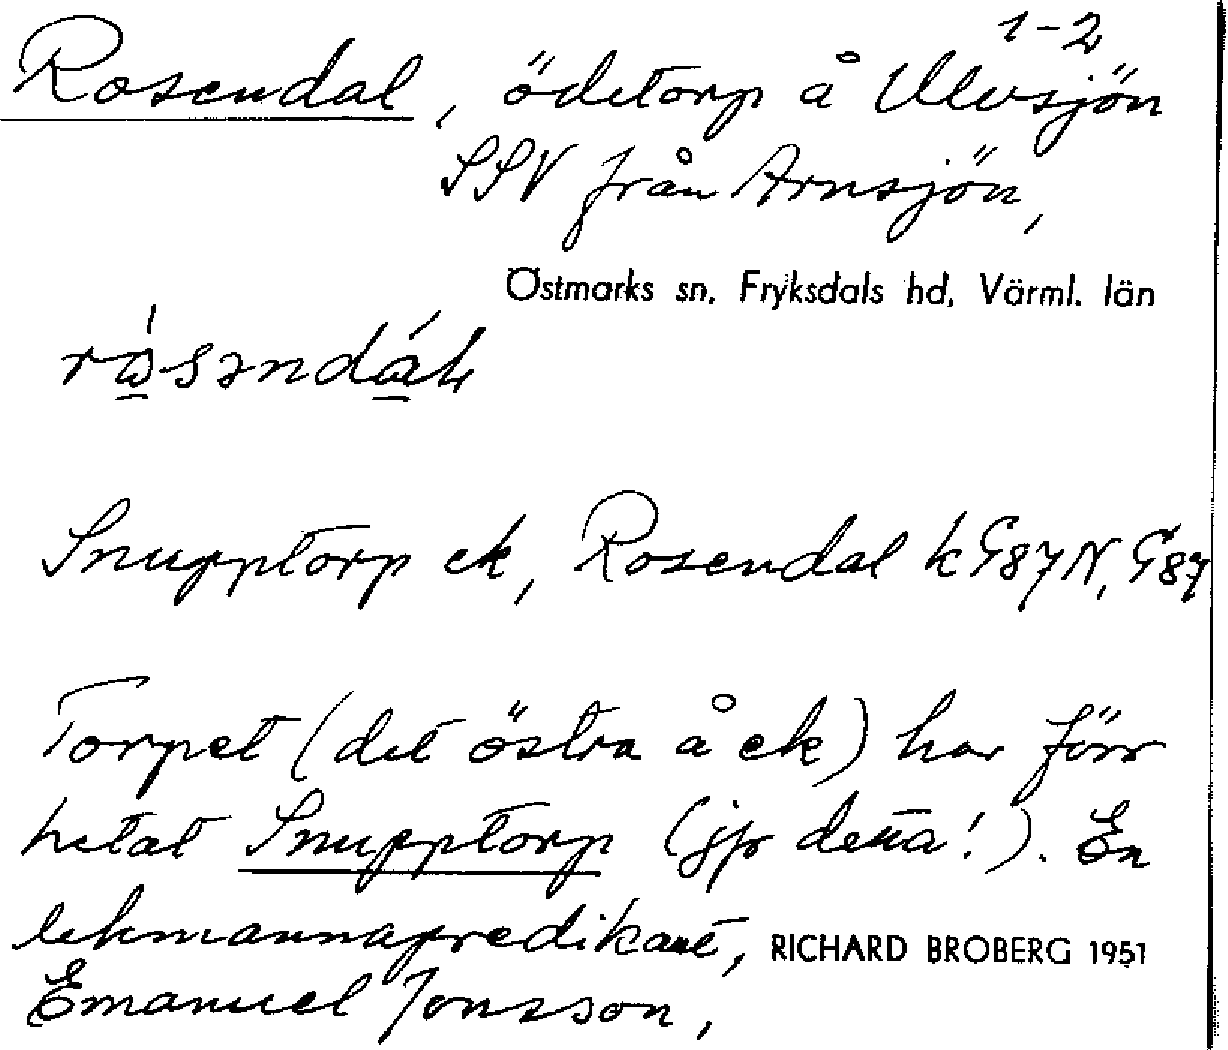 1-2
Rosendal, ödetorp å Ulvsjön
SSV från Arnsjön,
Östmarks sn. Fryksdals hd, Värml. län
Snupptorp ek, Rosendal k G87N, G87
Torpet (det östra å ek) har förr
hetat Snupptorp (jfr detta!). En
lekmannapredikant, RICHARD BROBERG 1951
Emanuel Jonsson,